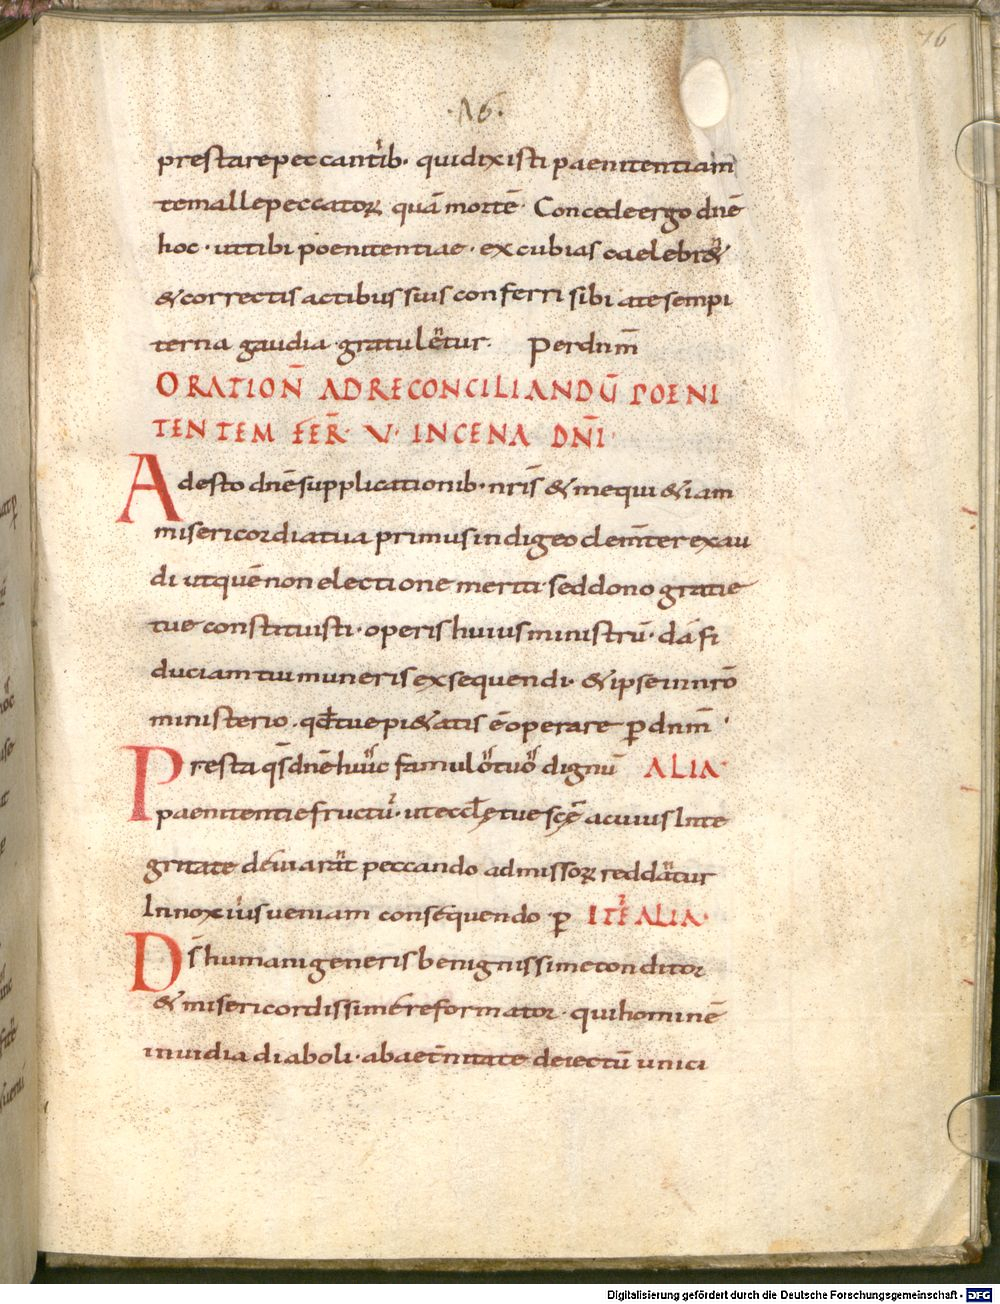 16
·16·
prestare peccantib· qui dixisti paenitentiam
te malle peccatoꝝ quā mortē· Concede ergo dnē
hoc · ut tibi poenitentiae · excubias caelebr&
& correctis actibus suis conferri sibi a te sempi
terna gaudia gratuletur· Per dnm̄
ORATION̄ AD RECONCILIANDŪ POENI
TENTEM FER̄· V· IN CENA DN̄I·
Adesto dnē supplicationib· nr̄is & me qui &iam
misericordia tua primus indigeo clem̄ter exau
di ut quē non electione meriti· sed dono gratie
tue constituisti · operis huius ministrū· da fi
duciam tui muneris exsequendi· & ipse in nr̄o
ministerio · qd̄ tue pi&atis ē operare p̄ dnm̄·
Presta qs̄ dnē huic famulo tuo dignū ALIA·
paenitentie fructū· ut eccl̄ę tue sc̄ę a cuius inte
gritate deuiarat peccando admissoꝝ reddatur
Innoxius ueniam consequendo · p̄ ITĒ ALIA·
Ds̄ humani generis benignissime conditor
& misericordissime reformator · qui hominē
inuidia diaboli· ab aet̄nitate deiectū unici
Digitalisierung gefördert durch die Deutsche Forschungsgemeinschaft - DFG